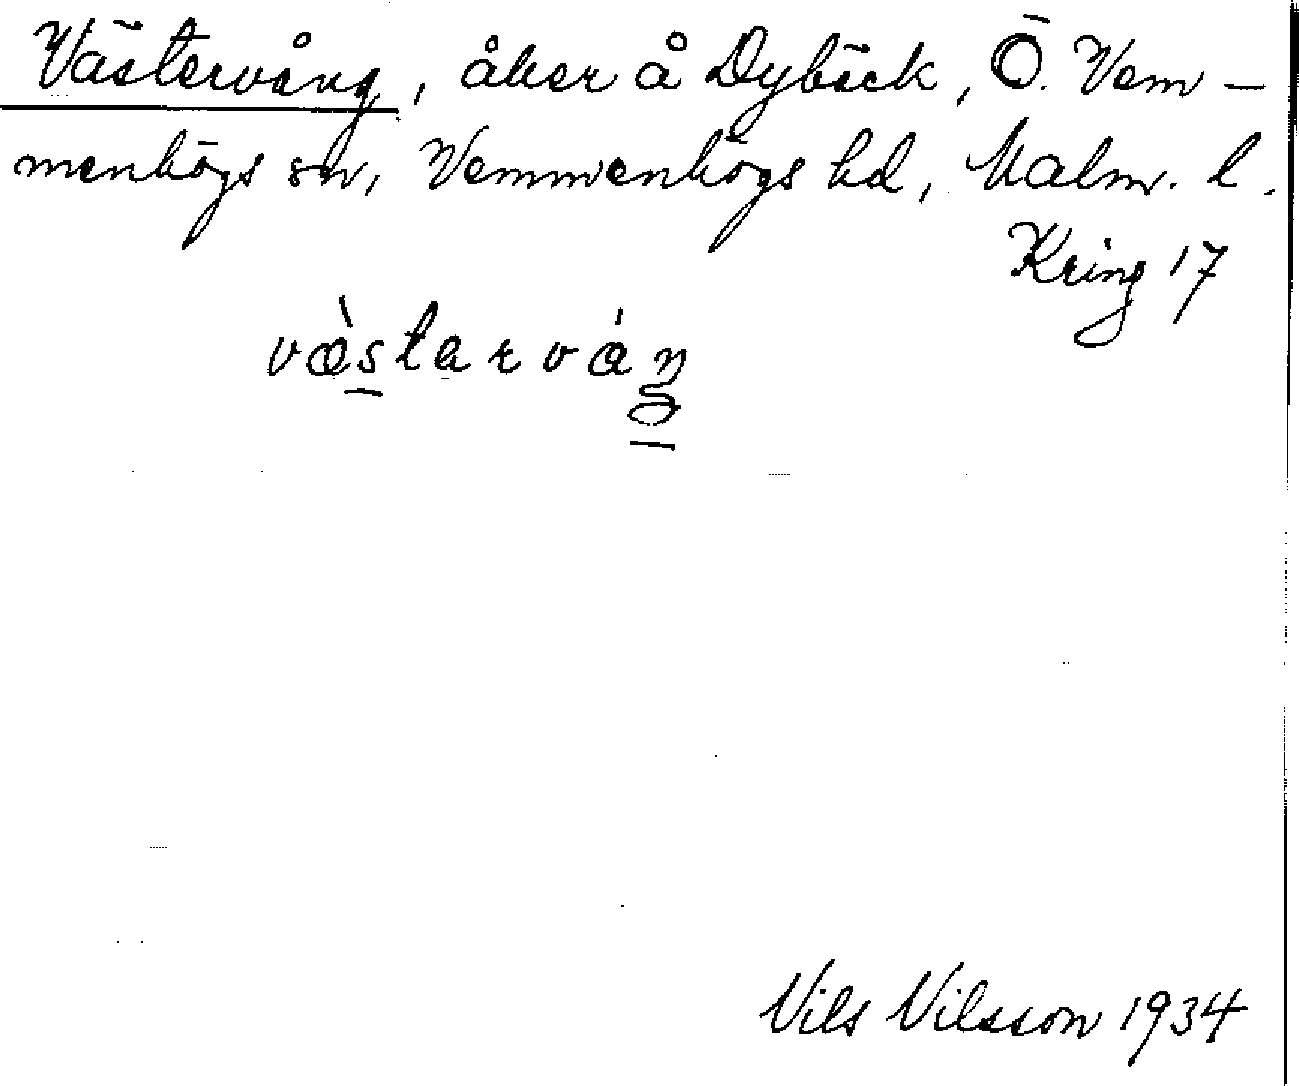 Västervång, åker å Dybäck, Ö. Vem-
menhögs sn, Vemmenhögs hd, Malm. l.
Kring 17
væ̀starváŋ
Nils Nilsson 1934